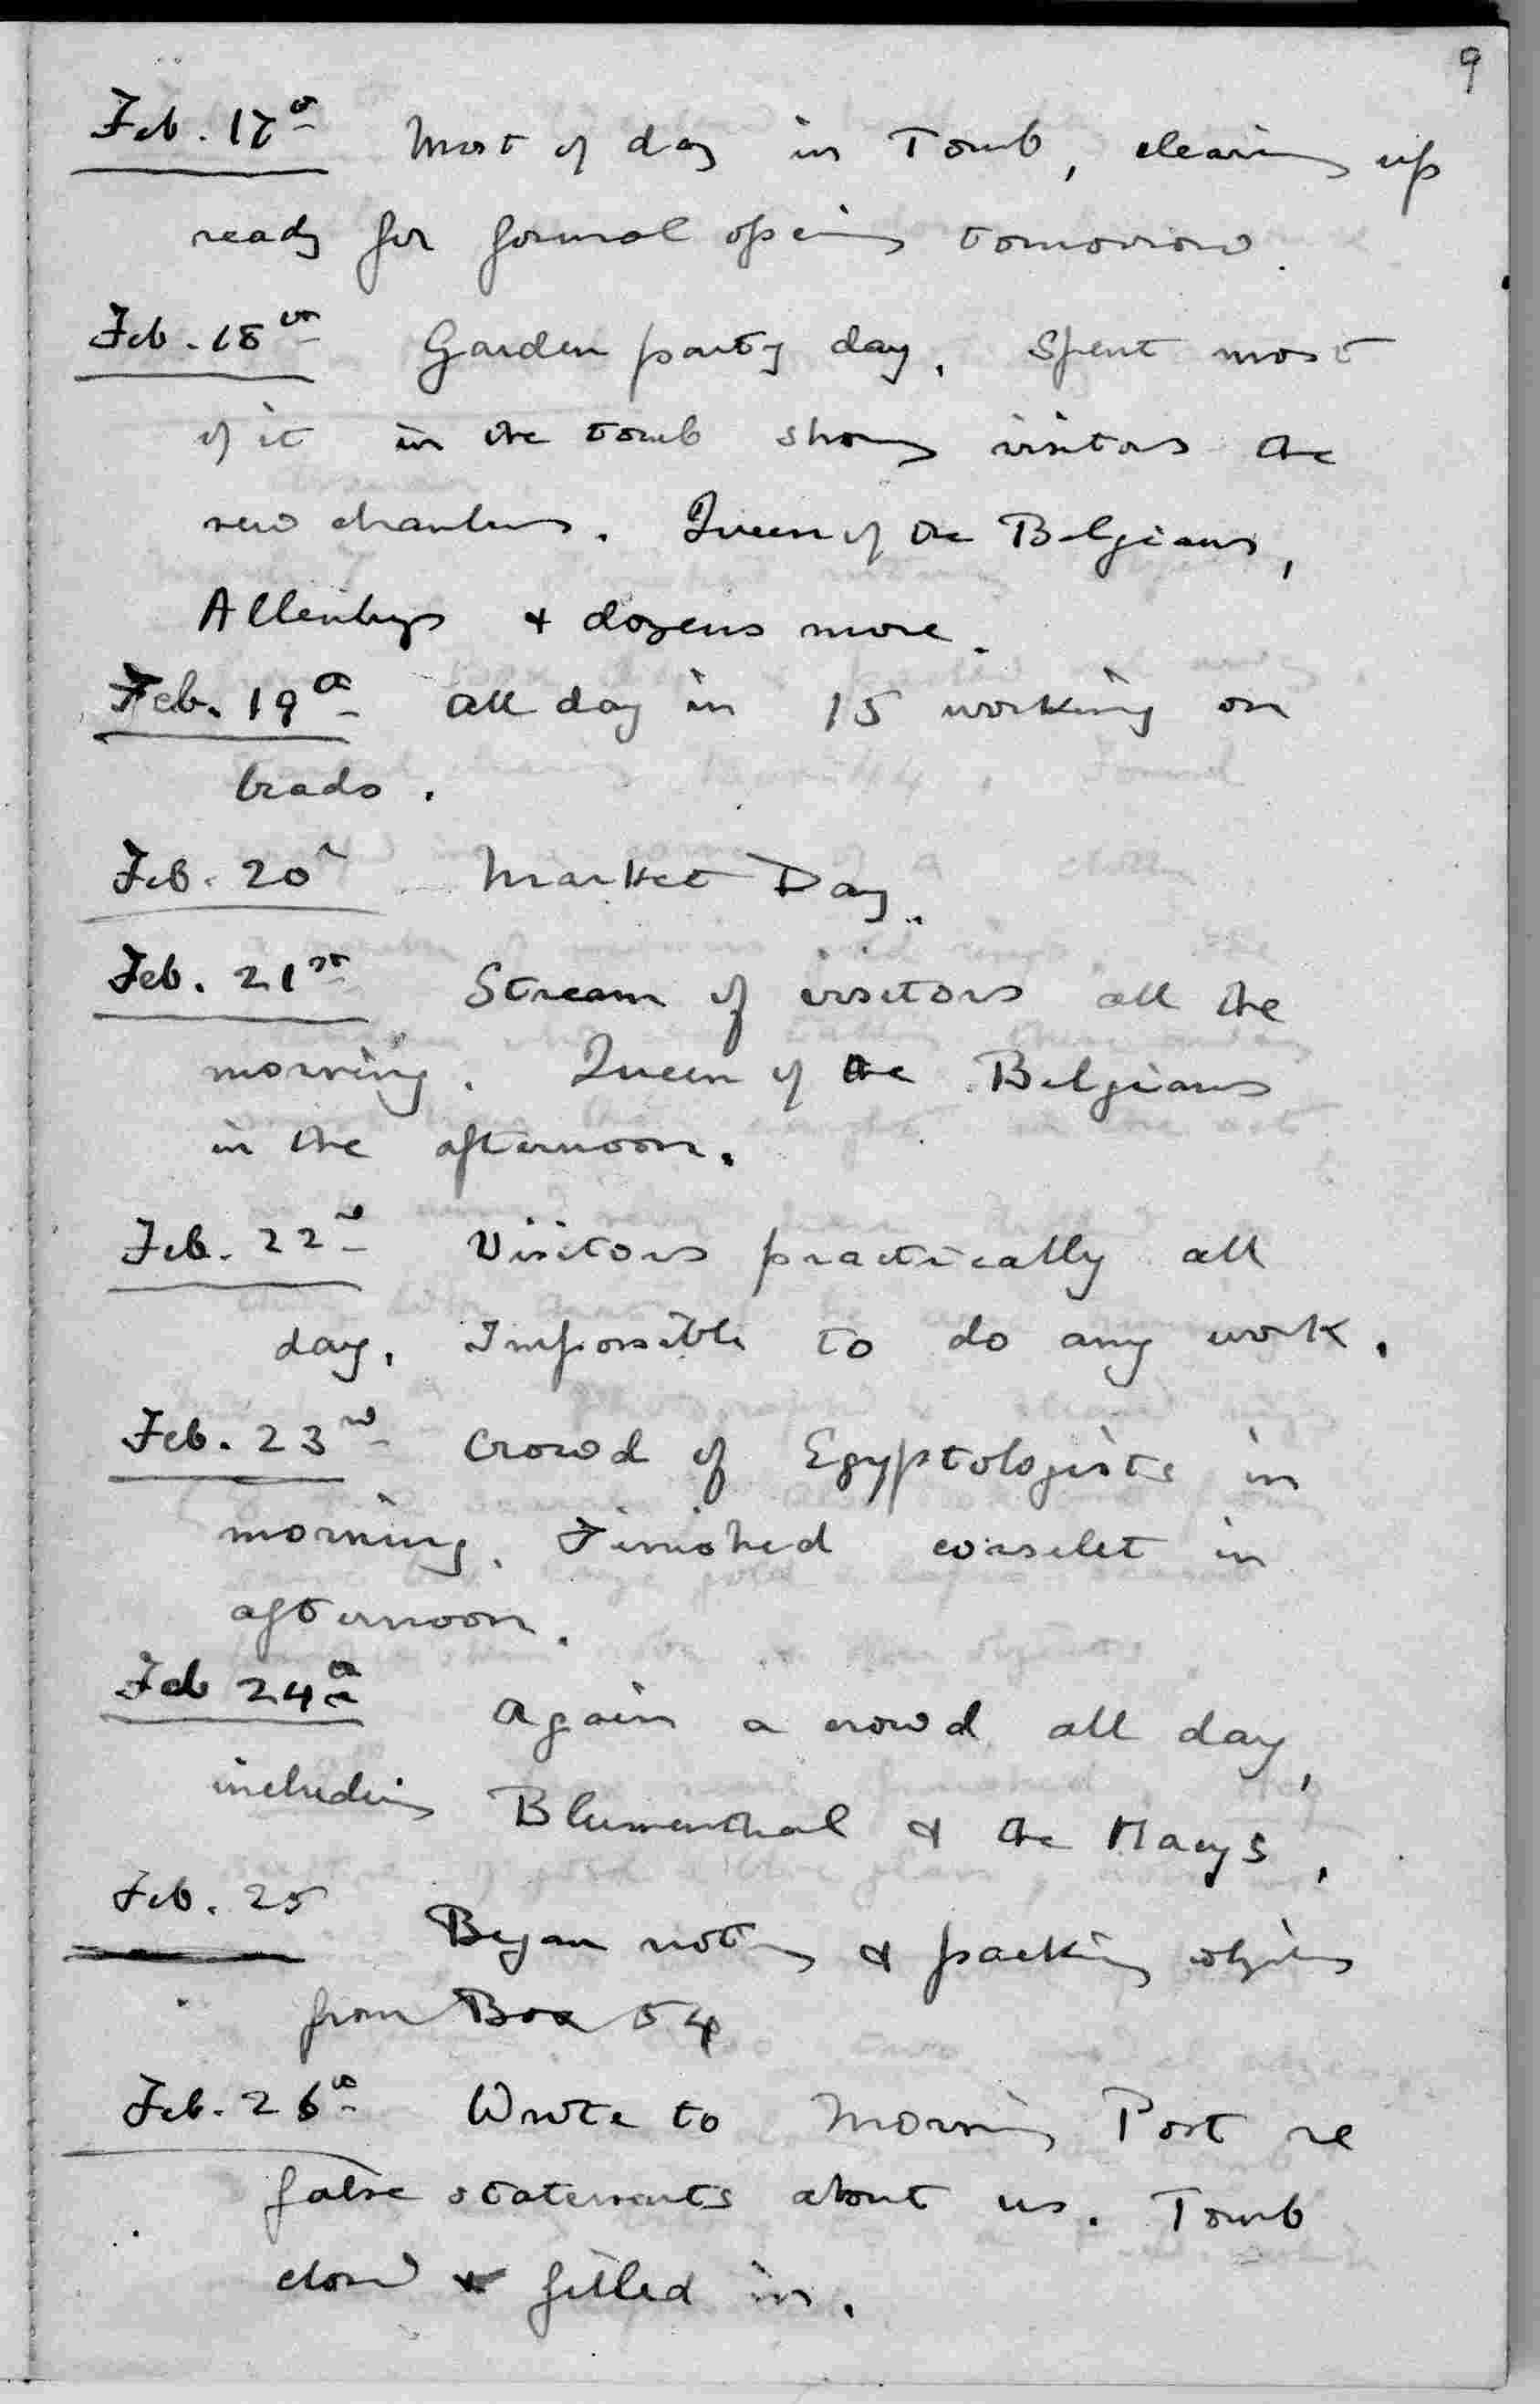 9
Feb. 17th Most of day in Tomb, clearing up
ready for formal opening tomorrow.
Feb. 18th Garden party day. Spent most
of it in the tomb showing visitors the
new chambers. Queen of the Belgians,
Allenbys & dozens more.
Feb. 19th All day in 15 working on
beads.
Feb. 20th Market Day.
Feb. 21st Stream of visitors all the
morning. Queen of the Belgians
in the afternoon.
Feb. 22nd Visitors practically all
day. Impossible to do any work.
Feb. 23rd Crowd of Egyptologists in
morning. Finished corselet in
afternoon.
Feb 24th Again a crowd all day,
including Blumenthal & the Macys.
Feb. 25 Began noting & packing objects
from Box 54
Feb. 26th Wrote to Morning Post re
false statements about us. Tomb
closed & filled in.